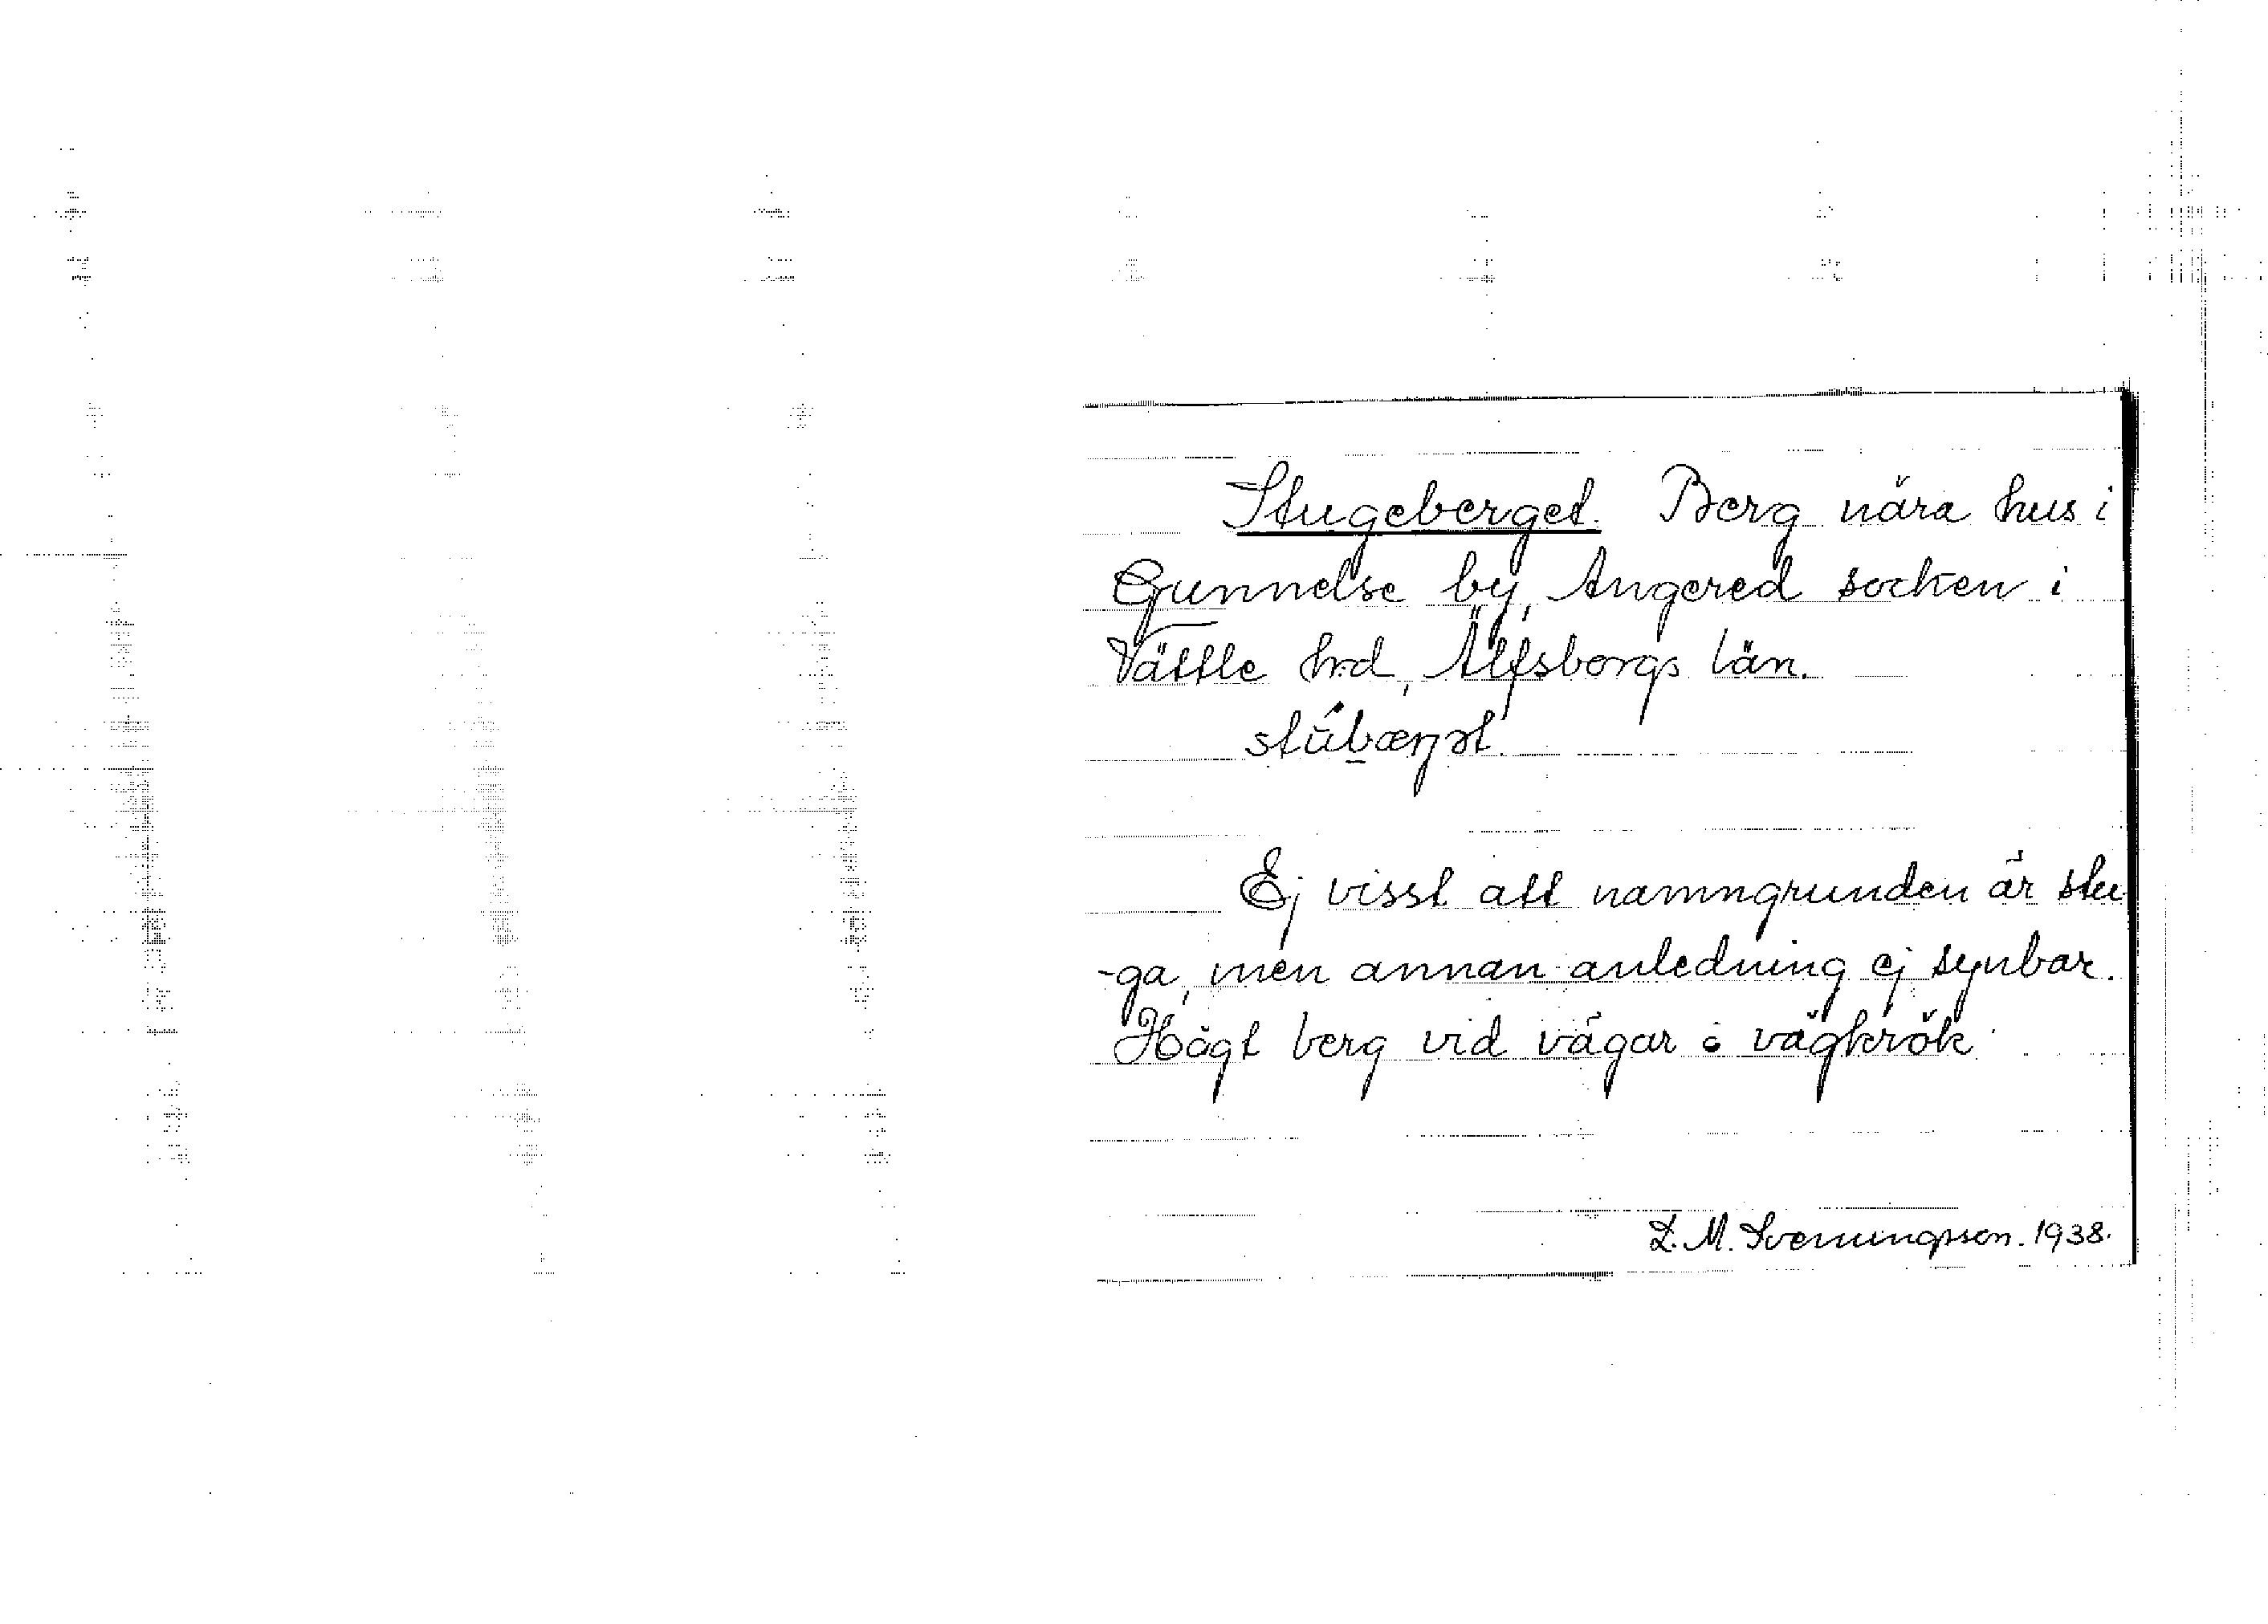 Stugeberget. Berg nära hus i
Gunnelse by, Angered socken i
Vättle hrd, Älfsborgs län.
Ej visst att namngrunden är stu
-ga, men annan anledning ej synbar.
Högt berg vid vägar o vägkrök.
L. M. Svenungsson. 1938.